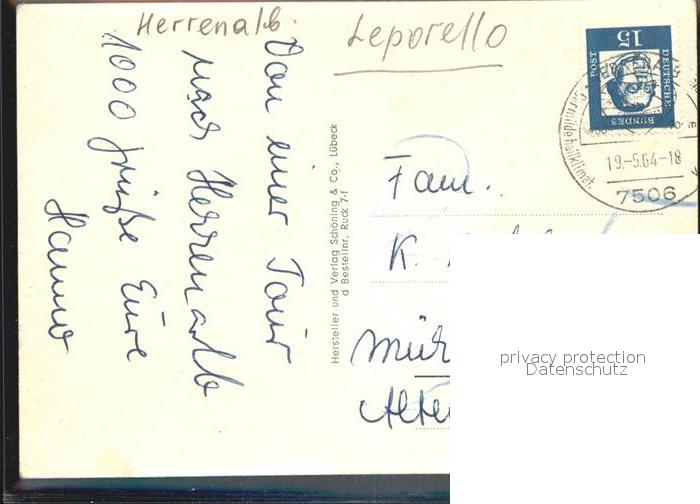 Herrenalb.
Leporello
Von einer Tour
nach Herrenalb
1000 grüße Eure
Hanno
Hersteller und Verlag Schöning & Co., Lübeck
d Bestellnr. Ruck 7-f
15
DEUTSCHE
BUNDES
POST
19.-5.64-18
7506
Fam.
K.
privacy protection
Datenschutz